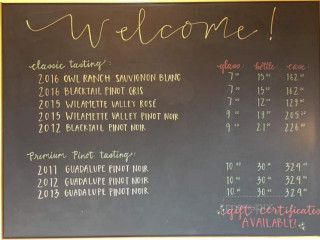 Welcome!
classic tasting: glass bottle case
2016 OWL RANCH SAUVIGNON BLANC 7 15 162
2016 BLACKTAIL PINOT GRIS 7 15 162
2015 WILAMETTE VALLEY ROSÉ 7 12
2015 WILAMETTE VALLEY PINOT NOIR 9 19 205
2012 BLACKTAIL PINOT NOIR 9 21
Premium Pinot tasting:
2011 GUADALUPE PINOT NOIR 10 30 324
2012 GUADALUPE PINOT NOIR 10 30 324
2013 GUADALUPE PINOT NOIR 10 30 324
gift certificates
AVAILABLE!